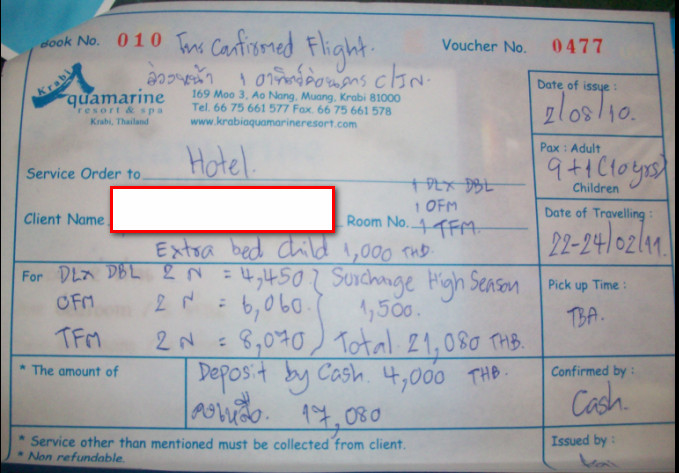 Book No. 010 โทร Confirmed Flight.
Voucher No. 0477
ล่วงหน้า 1 อาทิตย์ก่อนการ C/IN.
Krabi
Aquamarine
resort & spa
Krabi, Thailand
169 Moo 3, Ao Nang, Muang, Krabi 81000
Tel. 66 75 661 577 Fax. 66 75 661 578
www.krabiaquamarineresort.com
Date of issue :
2/08/10.
Service Order to Hotel.
Pax : Adult
9+1 (10yrs)
Children
Client Name
Room No.
1 DLX DBL
1 OFM
1 TFM.
Extra bed child 1,000 THB.
Date of Travelling :
22-24/02/11.
For DLX DBL 2 N = 4,450 } Surcharge High Season
OFM 2 N = 6,060. 1,500.
TFM 2 N = 8,070 Total 21,080 THB.
Pick up Time :
TBA.
* The amount of
Deposit by Cash. 4,000 THB.
คงเหลือ. 17,080
Confirmed by :
Cash.
* Service other than mentioned must be collected from client.
* Non refundable.
Issued by :